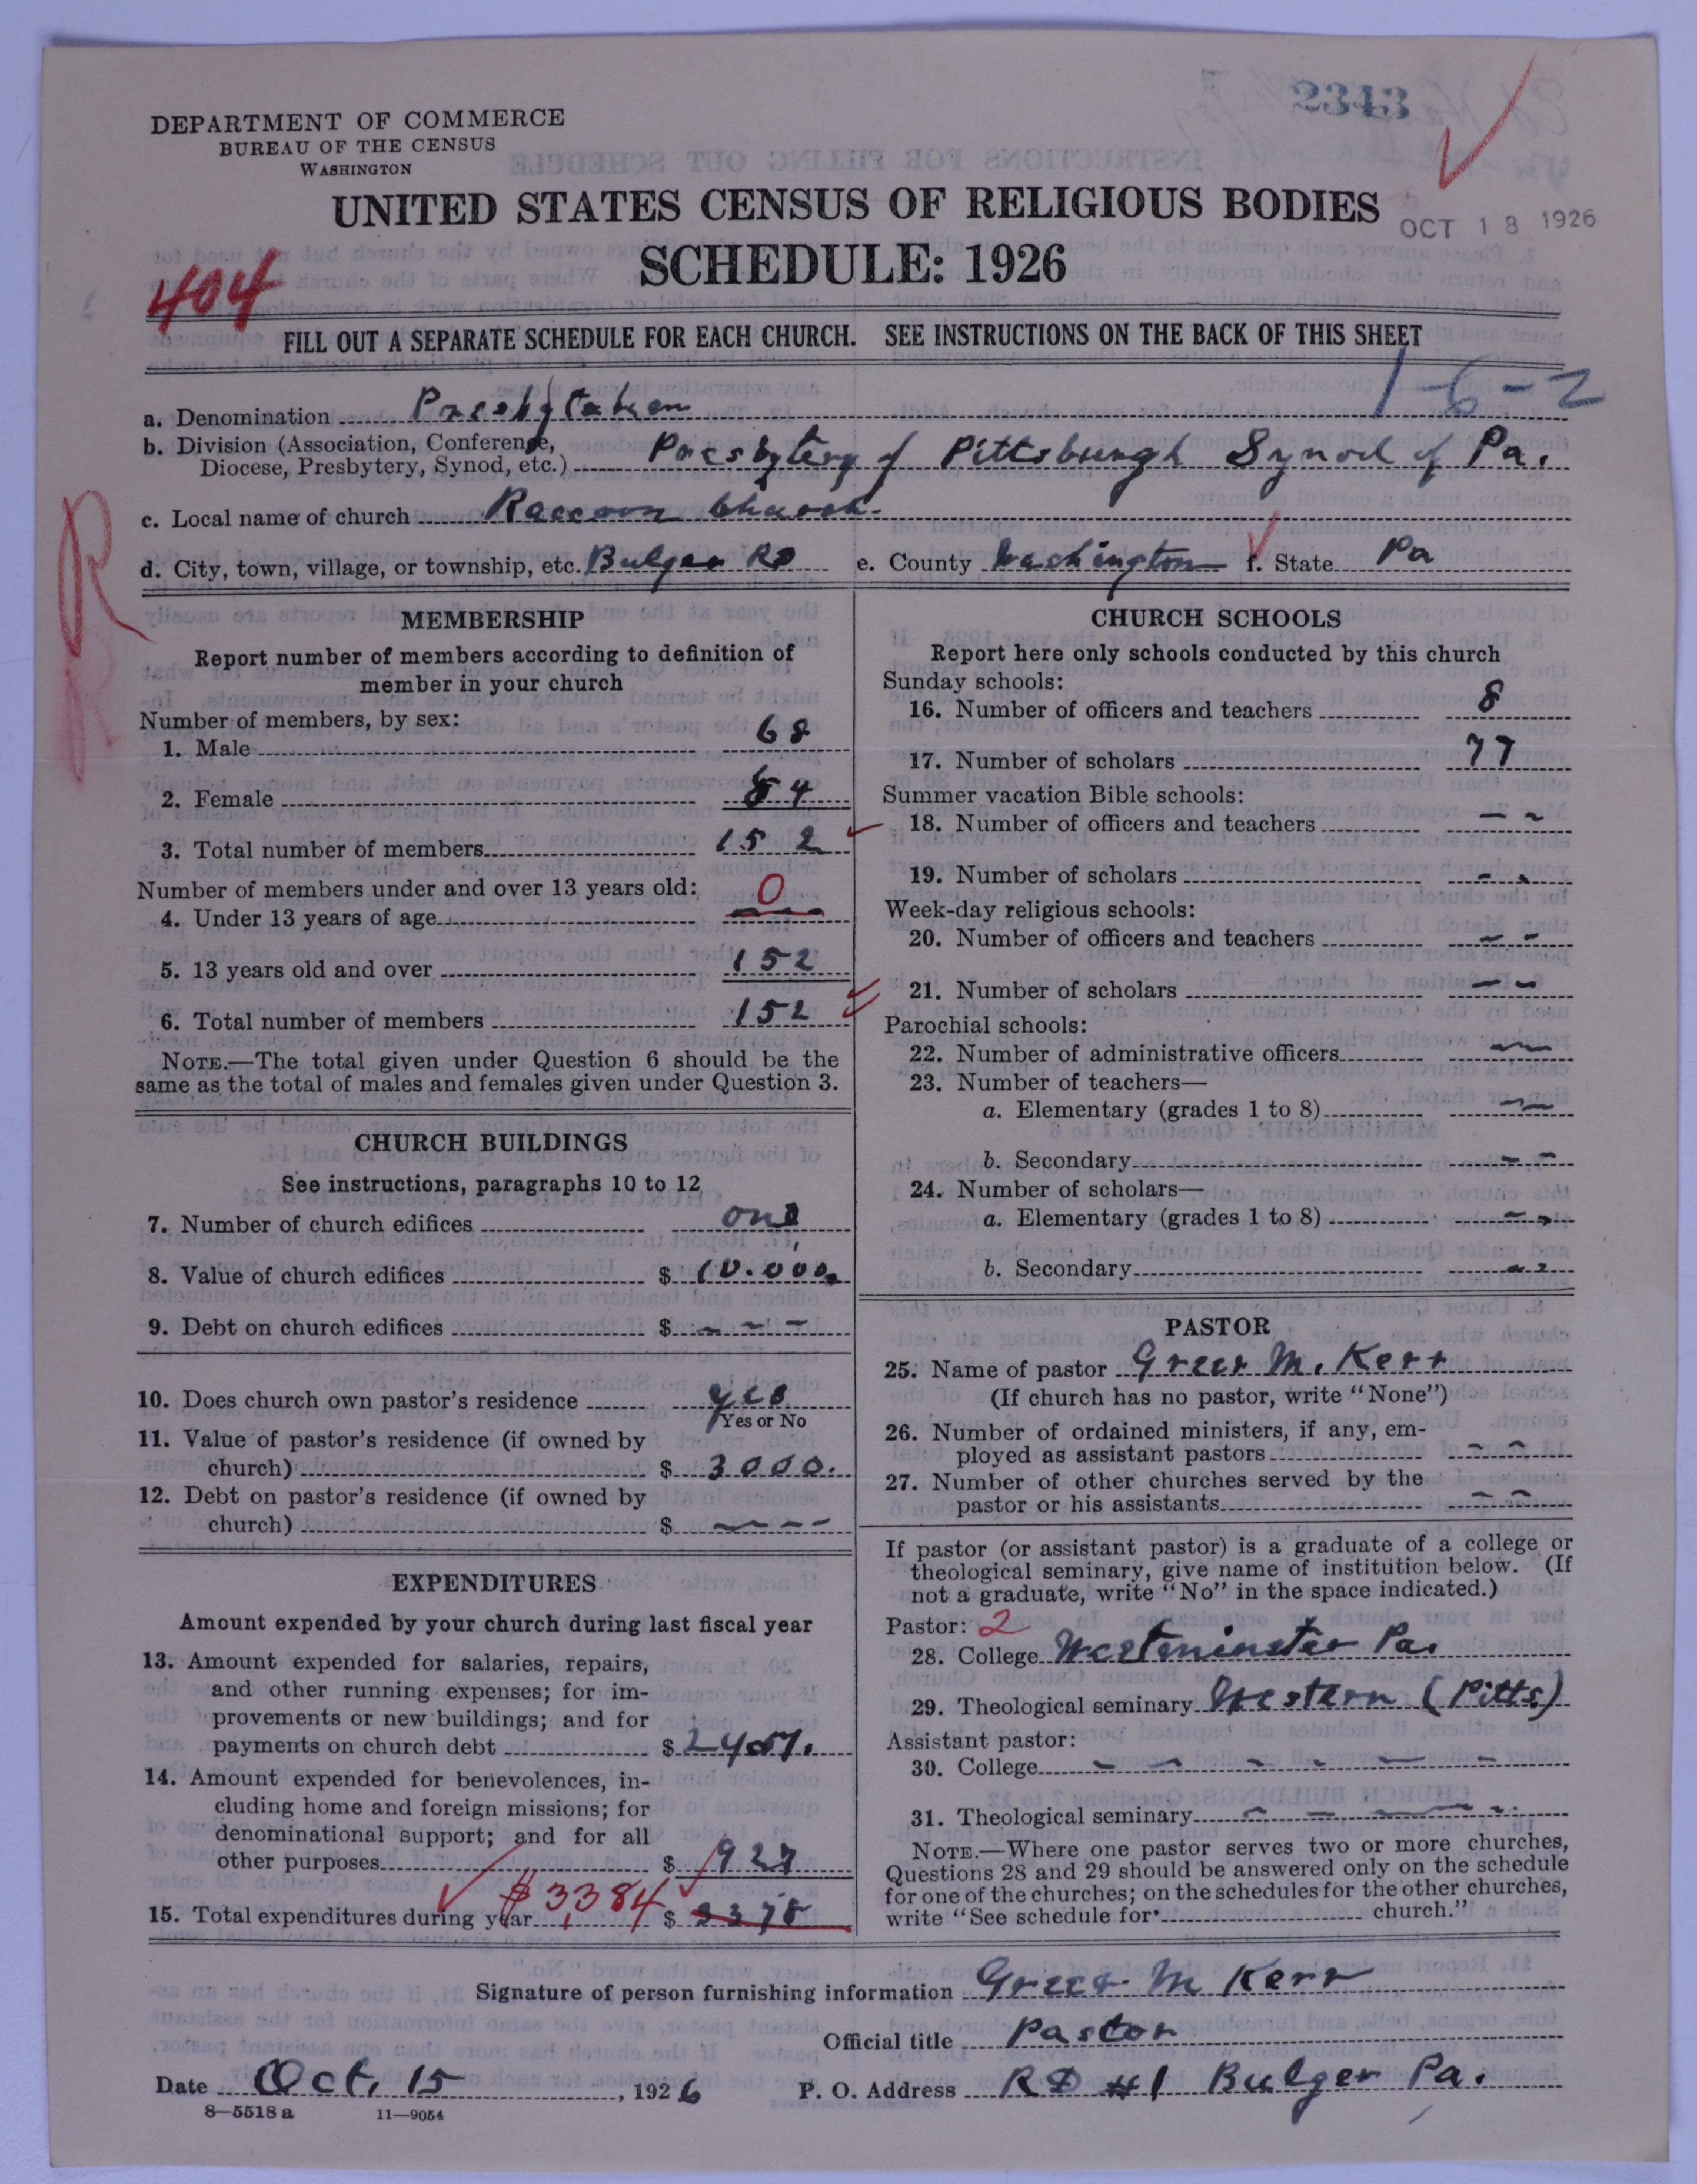 2343
DEPARTMENT OF COMMERCE
BUREAU OF THE CENSUS
WASHINGTON
UNITED STATES CENSUS OF RELIGIOUS BODIES
OCT 18 1926
SCHEDULE: 1926
404
FILL OUT A SEPARATE SCHEDULE FOR EACH CHURCH. SEE INSTRUCTIONS ON THE BACK OF THIS SHEET
1-6-2
a. Denomination Presbyterian
b. Division (Association, Conference,
Diocese, Presbytery, Synod, etc.) Presbytery of Pittsburgh Synod of Pa.
c. Local name of church Raccoon Church.
R
d. City, town, village, or township, etc. Bulger RD e. County Washington f. State Pa
MEMBERSHIP
Report number of members according to definition of
member in your church
Number of members, by sex:
1. Male 68
2. Female 84
3. Total number of members 152
Number of members under and over 13 years old:
4. Under 13 years of age 0
5. 13 years old and over 152
6. Total number of members 152
NOTE.—The total given under Question 6 should be the
same as the total of males and females given under Question 3.
CHURCH BUILDINGS
See instructions, paragraphs 10 to 12
7. Number of church edifices one
8. Value of church edifices $ 10.000
9. Debt on church edifices $ - - -
10. Does church own pastor's residence yes
Yes or No
11. Value of pastor's residence (if owned by
church) $ 3000.
12. Debt on pastor's residence (if owned by
church) $ - - -
EXPENDITURES
Amount expended by your church during last fiscal year
13. Amount expended for salaries, repairs,
and other running expenses; for im-
provements or new buildings; and for
payments on church debt $ 2457.
14. Amount expended for benevolences, in-
cluding home and foreign missions; for
denominational support; and for all
other purposes $ 927
$3,384
15. Total expenditures during year $ 3378
CHURCH SCHOOLS
Report here only schools conducted by this church
Sunday schools:
16. Number of officers and teachers 8
17. Number of scholars 77
Summer vacation Bible schools:
18. Number of officers and teachers - -
19. Number of scholars - -
Week-day religious schools:
20. Number of officers and teachers - -
21. Number of scholars - -
Parochial schools:
22. Number of administrative officers - -
23. Number of teachers—
a. Elementary (grades 1 to 8) - -
b. Secondary - -
24. Number of scholars—
a. Elementary (grades 1 to 8) - -
b. Secondary - -
PASTOR
25. Name of pastor Greer M. Kerr
(If church has no pastor, write "None")
26. Number of ordained ministers, if any, em-
ployed as assistant pastors - -
27. Number of other churches served by the
pastor or his assistants - -
If pastor (or assistant pastor) is a graduate of a college or
theological seminary, give name of institution below. (If
not a graduate, write "No" in the space indicated.)
Pastor: 2
28. College Westminster Pa.
29. Theological seminary Western (Pitts)
Assistant pastor:
30. College - - - - -
31. Theological seminary - - - -
NOTE.—Where one pastor serves two or more churches,
Questions 28 and 29 should be answered only on the schedule
for one of the churches; on the schedules for the other churches,
write "See schedule for church."
Signature of person furnishing information Greer M Kerr
Official title Pastor
Date Oct. 15, 1926 P. O. Address RD #1 Bulger Pa.
8—5518 a 11—9054